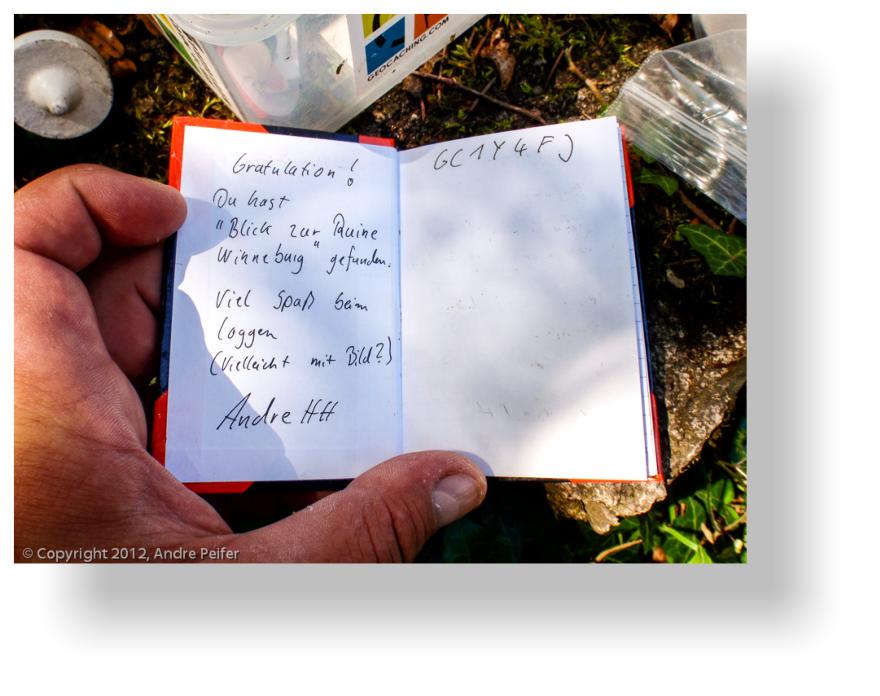 GEOCACHING.COM
Gratulation!
Du hast
"Blick zur Ruine
Winneburg" gefunden.
Viel Spaß beim
loggen
(Vielleicht mit Bild?)
Andre HH
GC1Y4FJ
© Copyright 2012, Andre Peifer